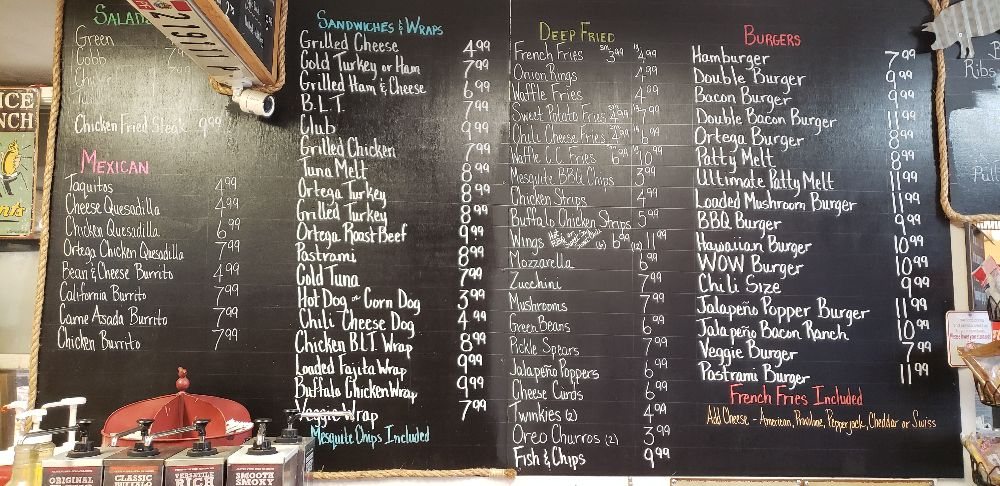 SALADS
Green
Cobb
Chicken Fried Steak 9.99
MEXICAN
Taquitos 4.99
Cheese Quesadilla 4.99
Chicken Quesadilla 6.99
Ortega Chicken Quesadilla 7.99
Bean & Cheese Burrito 4.99
California Burrito 7.99
Carne Asada Burrito 7.99
Chicken Burrito 7.99
SANDWICHES & WRAPS
Grilled Cheese 4.99
Cold Turkey or Ham 7.99
Grilled Ham & Cheese 6.99
B.L.T. 7.99
Club 9.99
Grilled Chicken 7.99
Tuna Melt 8.99
Ortega Turkey 8.99
Grilled Turkey 8.99
Ortega Roast Beef 9.99
Pastrami 8.99
Cold Tuna 7.99
Hot Dog or Corn Dog 3.99
Chili Cheese Dog 4.99
Chicken BLT Wrap 8.99
Loaded Fajita Wrap 9.99
Buffalo Chicken Wrap 9.99
Veggie Wrap 7.99
Mesquite Chips Included
DEEP FRIED
French Fries sm 3.99 lg 4.99
Onion Rings 4.99
Waffle Fries 4.99
Sweet Potato Fries sm 4.99 lg 7.99
Chili Cheese Fries sm 4.99 lg 6.99
Waffle C.C. Fries sm 6.99 lg 10.99
Mesquite BBQ Chips 3.99
Chicken Strips 4.99
Buffalo Chicken Strips 5.99
Wings (6) 6.99 (12) 11.99
Mozzarella 6.99
Zucchini 7.99
Mushrooms 7.99
Green Beans 6.99
Pickle Spears 7.99
Jalapeño Poppers 6.99
Cheese Curds 6.99
Twinkies (2) 4.99
Oreo Churros (2) 3.99
Fish & Chips 9.99
BURGERS
Hamburger 7.99
Double Burger 9.99
Bacon Burger 9.99
Double Bacon Burger 11.99
Ortega Burger 8.99
Patty Melt 8.99
Ultimate Patty Melt 11.99
Loaded Mushroom Burger 11.99
BBQ Burger 9.99
Hawaiian Burger 10.99
WOW Burger 10.99
Chili Size 9.99
Jalapeño Popper Burger 11.99
Jalapeño Bacon Ranch 10.99
Veggie Burger 7.99
Pastrami Burger 11.99
French Fries Included
Add Cheese - American, Provolone, Pepperjack, Cheddar or Swiss
Ribs
ORIGINAL
CLASSIC
BUFFALO
VERSATILE
RICH
SMOOTH
SMOKY